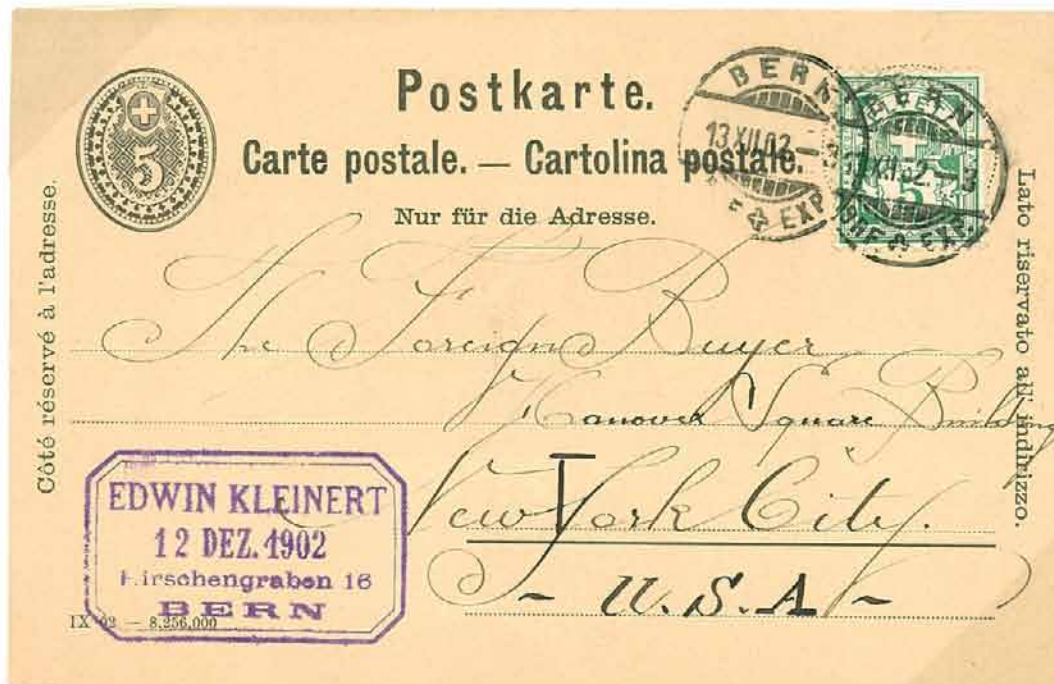 Postkarte.
Carte postale. — Cartolina postale.
Nur für die Adresse.
5
BERN
13.XII.02.— 3
EXP
BERN
XII.02.
EXP
Côté réservé à l'adresse.
Lato riservato all' indirizzo.
The Foreign Buyer
Hanover Square Building
New York City.
- U.S.A -
EDWIN KLEINERT
12 DEZ. 1902
Hirschengraben 16
BERN
IX 02 — 8,256,000